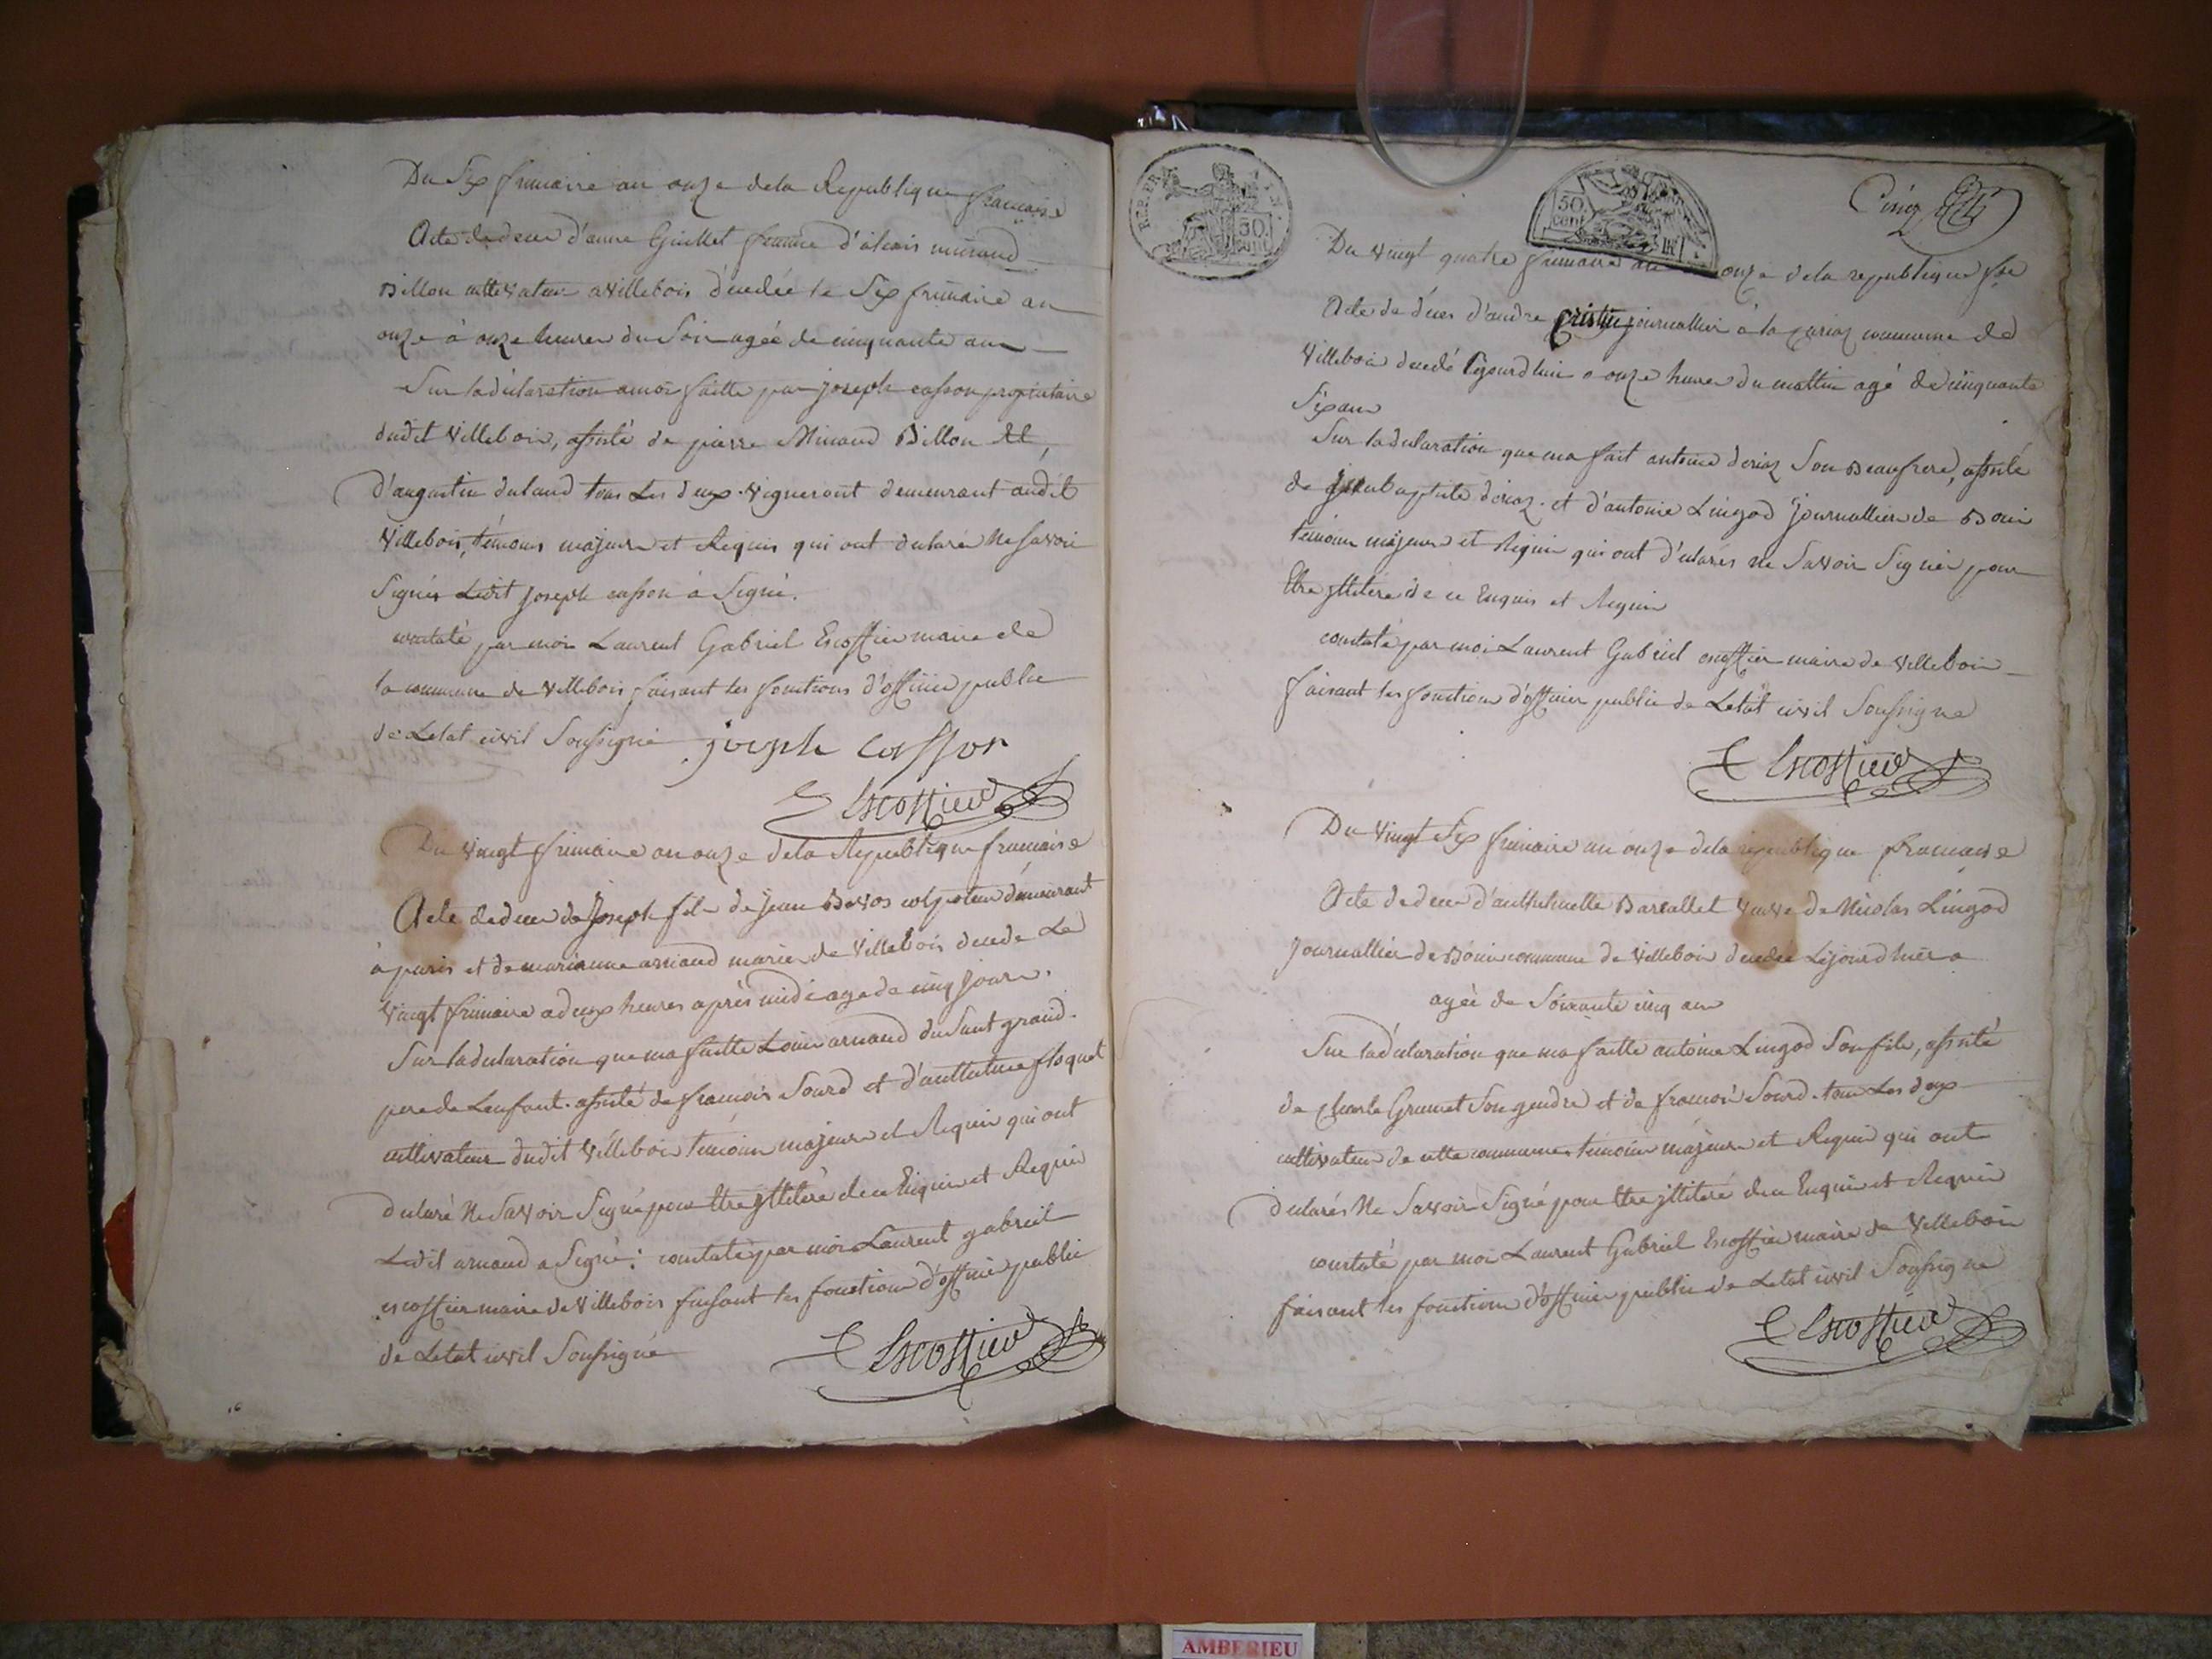 Du Six frimaire an onze dela Republique francaise
Acte de deces d'anne Guillet femme d'alexis minand
Billon cultivateur a villebois décedée le Six frimaire an
onze à onze heures du Soir agée de cinquante ans
Sur la déclaration amoi faitte par joseph casson propriétaire
dudit villebois, assisté de pierre Minaud Billon et,
d'augustin dulaud tous Les deux vigneront demeurant audit
villebois, témoins majeurs et Requis qui ont déclaré Ne savoir
Signés Ledit joseph casson à Signé.
constaté par moi Laurent Gabriel Escoffier maire de
la commune de villebois faisant les fonctions d'officier public
de Letat civil Soussigné joseph casson
Escoffier
Du vingt frimaire an onze dela Republique francaise
Acte de deces de Joseph fils de jean colporteur demeurant
à paris et de marianne arnaud mariés de villebois decede Le
vingt frimaire a deux heures après midi age de cinq jours.
Sur la declaration que ma faitte Louis arnaud du Saut grand
pere de Lenfant. assisté de francois Sourd et d'anthelme floquet
cultivateurs dudit villebois temoins majeurs et Requis qui ont
declaré Ne Savoir Signé pour Etre jttiteré dece Enquis et Requis
Ledit arnaud a Signé: constaté par moi Laurent gabriel
escoffier maire de villebois faisant les fonctions d'officier public
de Letat civil Soussigné Escoffier
REP. FRA.
50
cent.
50
cent
Cinq
Du vingt quatre frimaire an onze dela republique fse
Acte de déces d'andre journallier à la commune de
villebois decedé Lejourdhui a onze heures du mattin agé de cinquante
Six ans
Sur la déclaration que ma fait antoine deriaz Son Beaufrere, assisté
de jean baptiste deriaz. et d'antoine Lingod journalliers de Bouis
temoins majeurs et Requis qui ont d'eclarés ne Savoir Signer pour
Etre jttiteré de ce Enquis et Requis
constaté par moi Laurent Gabriel escoffier maire de villebois
faisant les fonctions d'officier public de Letat civil Soussigne
Escoffier
Du vingt Six frimaire an onze dela republique francaise
Acte de deces d'anthelmette Barcallet veuve de Nicolas Lingod
journallier de Bouis commune de villebois decedée Lejourdhui a
agée de Soixante cinq ans
Sur la déclaration que ma faitte antoine Lingod Son fils, assisté
de charle Grumet Son gendre et de francois Sourd. tous Les deux
cultivateurs de cette commune temoins majeurs et Requis qui ont
declarés Ne Savoir Signé pour Etre jttiteré dece Enquis et Requis
constaté par moi Laurent Gabriel Escoffier maire de villebois
faisant les fonctions d'officier public de Letat civil Soussigne
Escoffier
AMBERIEU